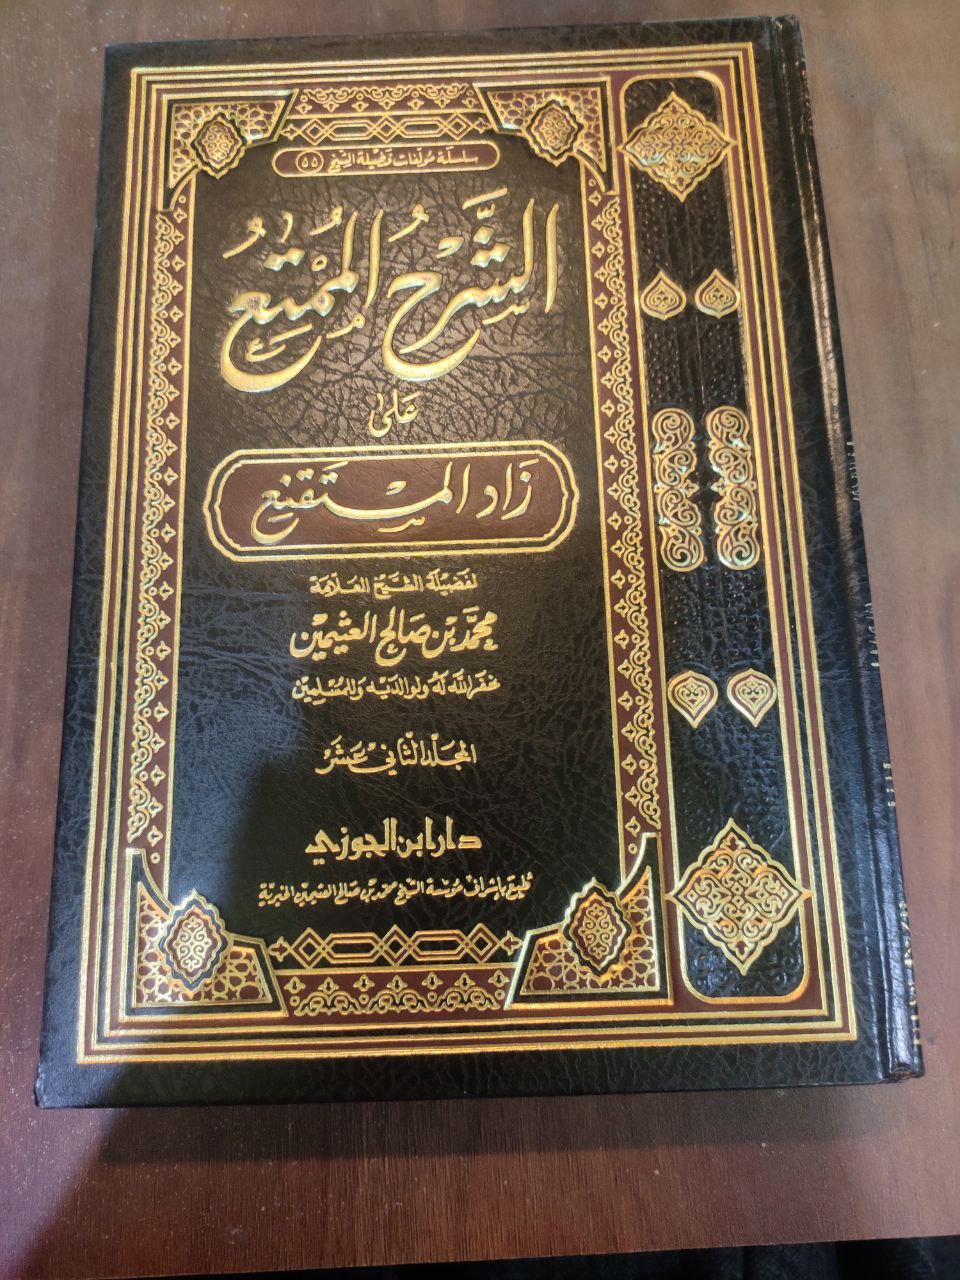 سلسلة مؤلفات فضيلة الشيخ (٥٥)
الشَّرْحُ المُمْتِعُ
عَلَىٰ
زَاد المُسْتَقْنِع
لفَضِيلَة الشَّيْخ العَلَّامَة
محمَّد بْن صَالِح العُثَيْمِين
غفَر اللَّه لَهُ ولوالدَيْه وَللمُسْلِمِين
المجَلّد الثَّانِي عَشَرَ
دار ابن الجوزي
طُبِعَ بإشراف مؤسسة الشيخ محمد بن صالح العثيمين الخيرية